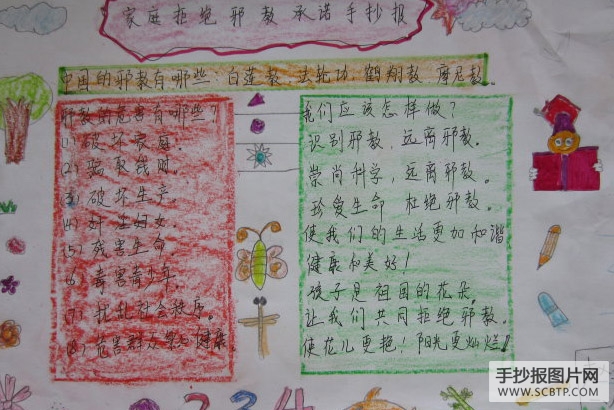 家庭拒绝邪教承诺手抄报
中国的邪教有哪些:白莲教 法轮功 鹤翔教 摩尼教、
邪教的危害有哪些?
(1)破坏家庭.
(2)骗取钱财.
(3)破坏生产.
(4)奸污妇女.
(5)残害生命.
(6)毒害青少年.
(7)扰乱社会秩序.
(8)危害群众身心健康
我们应该怎样做?
识别邪教、远离邪教。
崇尚科学,远离邪教。
珍爱生命 杜绝邪教。
使我们的生活更加和谐
健康和美好!
孩子是祖国的花朵,
让我们共同拒绝邪教。
使花儿更艳!阳光更灿烂!
234
手抄报图片网
WWW.SCBTP.COM